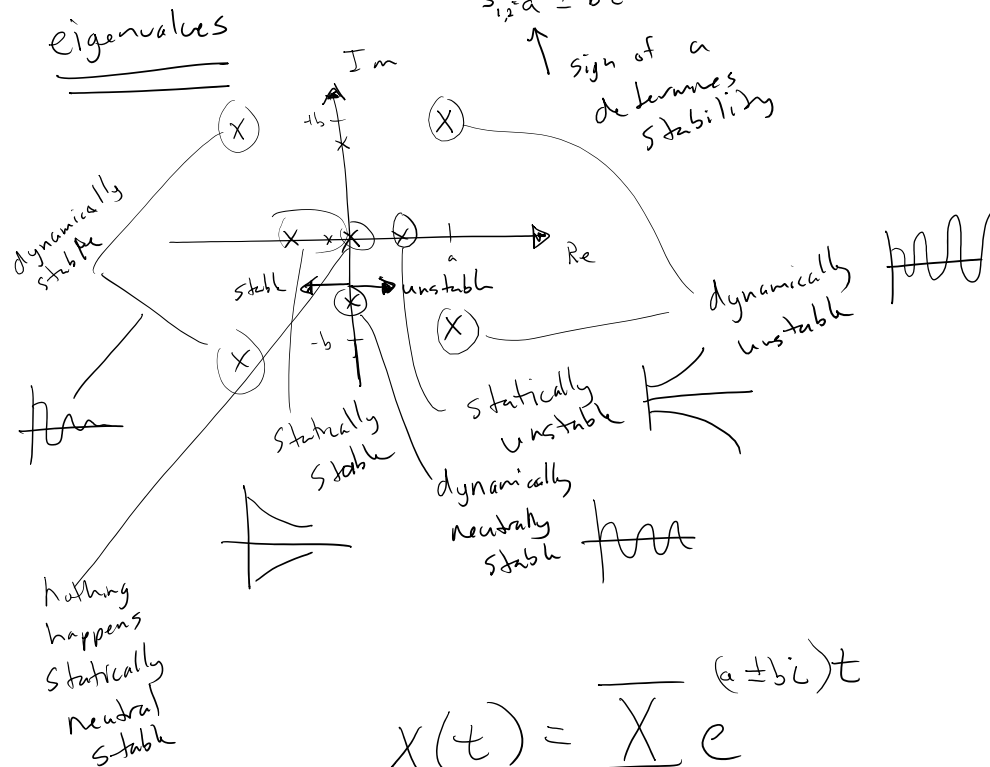 eigenvalues
s1,2=a ± bi
sign of a
determnes
stability
Im
+b
dynamically
stable
Re
a
stable
unstable
-b
dynamically
unstable
statically
unstable
statically
stable
dynamically
neutrally
stable
nothing
happens
statically
neutral
stable
x(t) = X e^(a ± bi)t